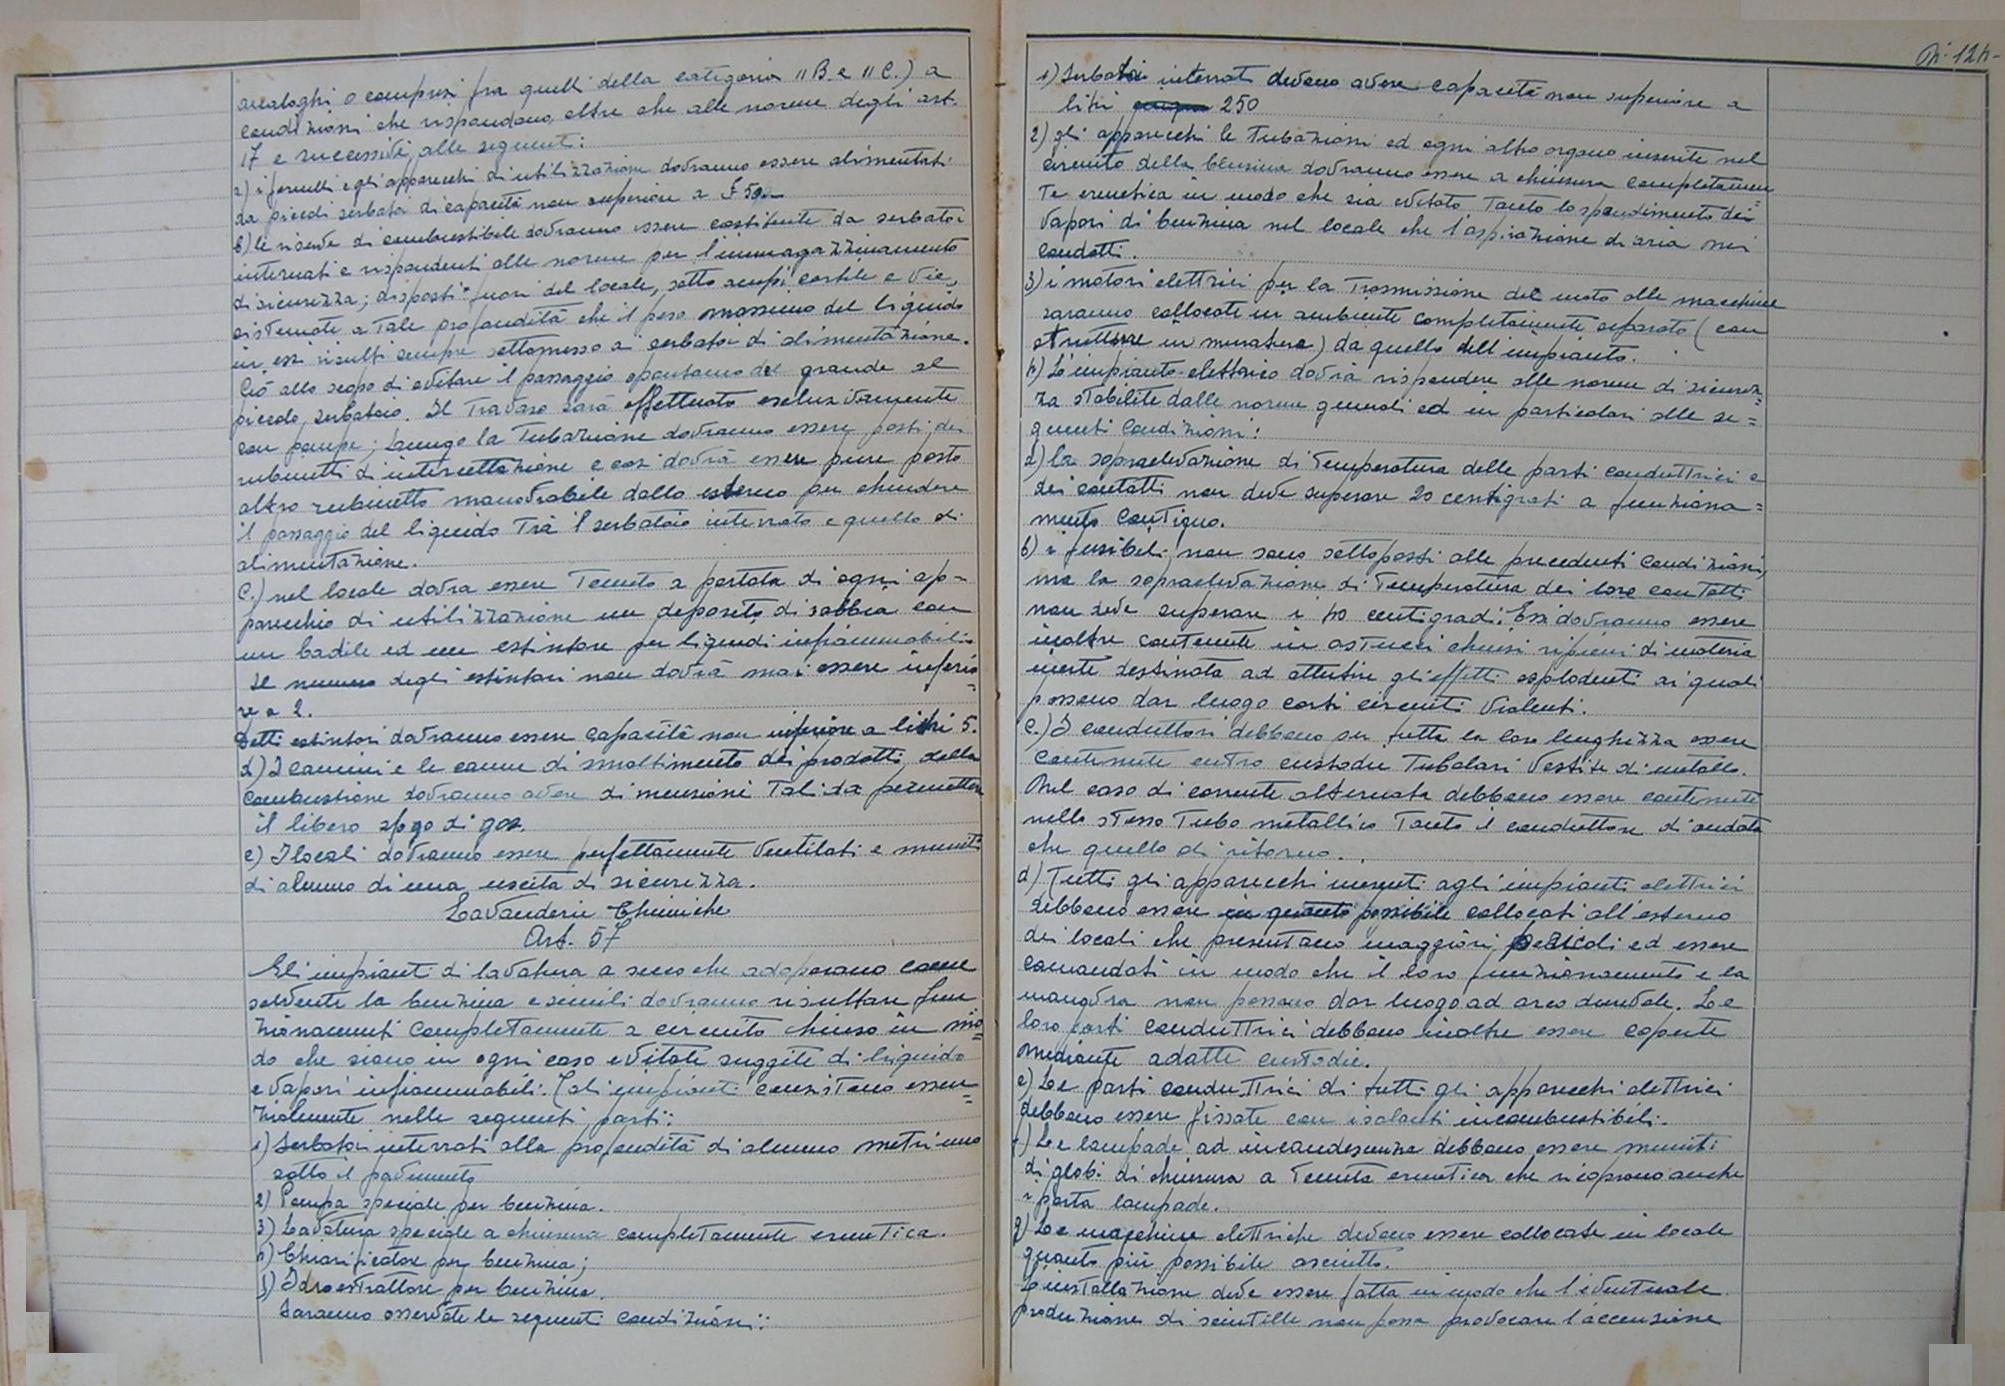 analoghi o compresi fra quelli della categoria "B e "C.) a
condizioni che rispondano, oltre che alle norme degli art.
17 e successivi, alle seguenti:
a) i fornelli e gli apparecchi di utilizzazione dovranno essere alimentati
da piccoli serbatoi di capacità non superiore a
b) le riserve di combustibile dovranno essere costituite da serbatoi
interrati e rispondenti alle norme per l'immagazzinamento
di sicurezza; disposti fuori del locale, sotto ampi cortile e vie,
sistemate a tale profondità che il peso massimo del liquido
in essi risulti sempre sottomesso ai serbatoi di alimentazione.
Ciò allo scopo di evitare il passaggio spontaneo dal grande al
piccolo serbatoio. Il travaso sarà effettuato esclusivamente
con pompe; lungo la tubazione dovranno essere posti dei
rubinetti di intercettazione e così dovrà essere pure posto
altro rubinetto manovrabile dallo esterno per chiudere
il passaggio del liquido tra il serbatoio interrato e quello di
alimentazione.
C.) nel locale dovra essere tenuto a portata di ogni ap-
parecchio di utilizzazione un deposito di sabbia con
un badile ed un estintore per liquidi infiammabili.
Il numero degli estintori non dovrà mai essere inferio=
re a 2.
Detti estintori dovranno essere capacità non inferiore a litri 5.
d) I camini e le canne di smaltimento dei prodotti della
combustione dovranno avere dimensioni tali da permettere
il libero sfogo di gas.
e) I locali dovranno essere perfettamente ventilati e muniti
di almeno di una uscita di sicurezza.
Lavanderie Chimiche
Art. 57
Gli impianti di lavatura a secco che adoperano come
solvente la benzina e simili dovranno risultare fun
zionamenti completamente a circuito chiuso in mo=
do che siano in ogni caso evitate suggite di liquido
e vapori infiammabili. Tali impianti consistono essen=
zialmente nelle seguenti parti:
1) Serbatoi interrati alla profondità di almeno metri uno
sotto il pavimento
2) Pompa speciale per benzina.
3) Lavatura speciale a chiusura completamente ermetica.
4) Chiarificatore per benzina;
5) Idroestrattore per benzina.
Saranno osservate le seguenti condizioni:
1) Serbatoi interrati devono avere capacità non superiore a
litri 250
2) gli apparecchi le tubazioni ed ogni altro organo inserite nel
circuito della benzina dovranno essere a chiusura completamen=
te ermetica in modo che sia evitato tanto lo spandimento dei
vapori di benzina nel locale che l'aspirazione di aria nei
condotti.
3) i motori elettrici per la trasmissione del moto alle macchine
saranno collocate in ambiente completamente separato (con
strutture in muratura) da quello dell'impianto.
4) L'impianto elettrico dovrà rispondere alle norme di sicurez=
za stabilite dalle norme generali ed in particolari alle se=
guenti condizioni:
a) la sopraelevazione di temperatura delle parti conduttrici e
dei contatti non deve superare 20 centigrati a funziona=
mento continuo.
b) i fusibili non sono sottoposti alle precedenti condizioni,
ma la sopraelevazione di temperatura dei loro contatti
non deve superare i 40 centigradi. Essi dovranno essere
inoltre contenute in astucci chiusi ripieni di materia
inerte destinata ad attutire gli effetti esplodenti ai quali
possono dar luogo corti circuiti violenti.
c.) I conduttori debbono per tutta la loro lunghezza essere
contenute entro custodie tubolari vestite di metallo.
Nel caso di corrente alternata debbono essere contenute
nello stesso tubo metallico tanto il conduttore di andata
che quello di ritorno.
d) Tutti gli apparecchi inerenti agli impianti elettrici
debbono essere in quanto possibile collocati all'esterno
dei locali che presentano maggiori pericoli ed essere
comandati in modo che il loro funzionamento e la
manovra non possano dar luogo ad arco durevole. Le
loro parti conduttrici debbono inoltre essere coperte
mediante adatte custodie.
e) Le parti conduttrici di tutti gli apparecchi elettrici
debbono essere fissate con isolanti incombustibili.
f) Le lampade ad incandescenza debbono essere muniti
di globi di chiusura a tenuta ermetica che ricoprono anche
i porta lampade.
g) Le macchine elettriche devono essere collocate in locale
quanto più possibile asciutto.
L'installazione deve essere fatta in modo che l'eventuale
produzione di scintille non possa provocare l'accensione